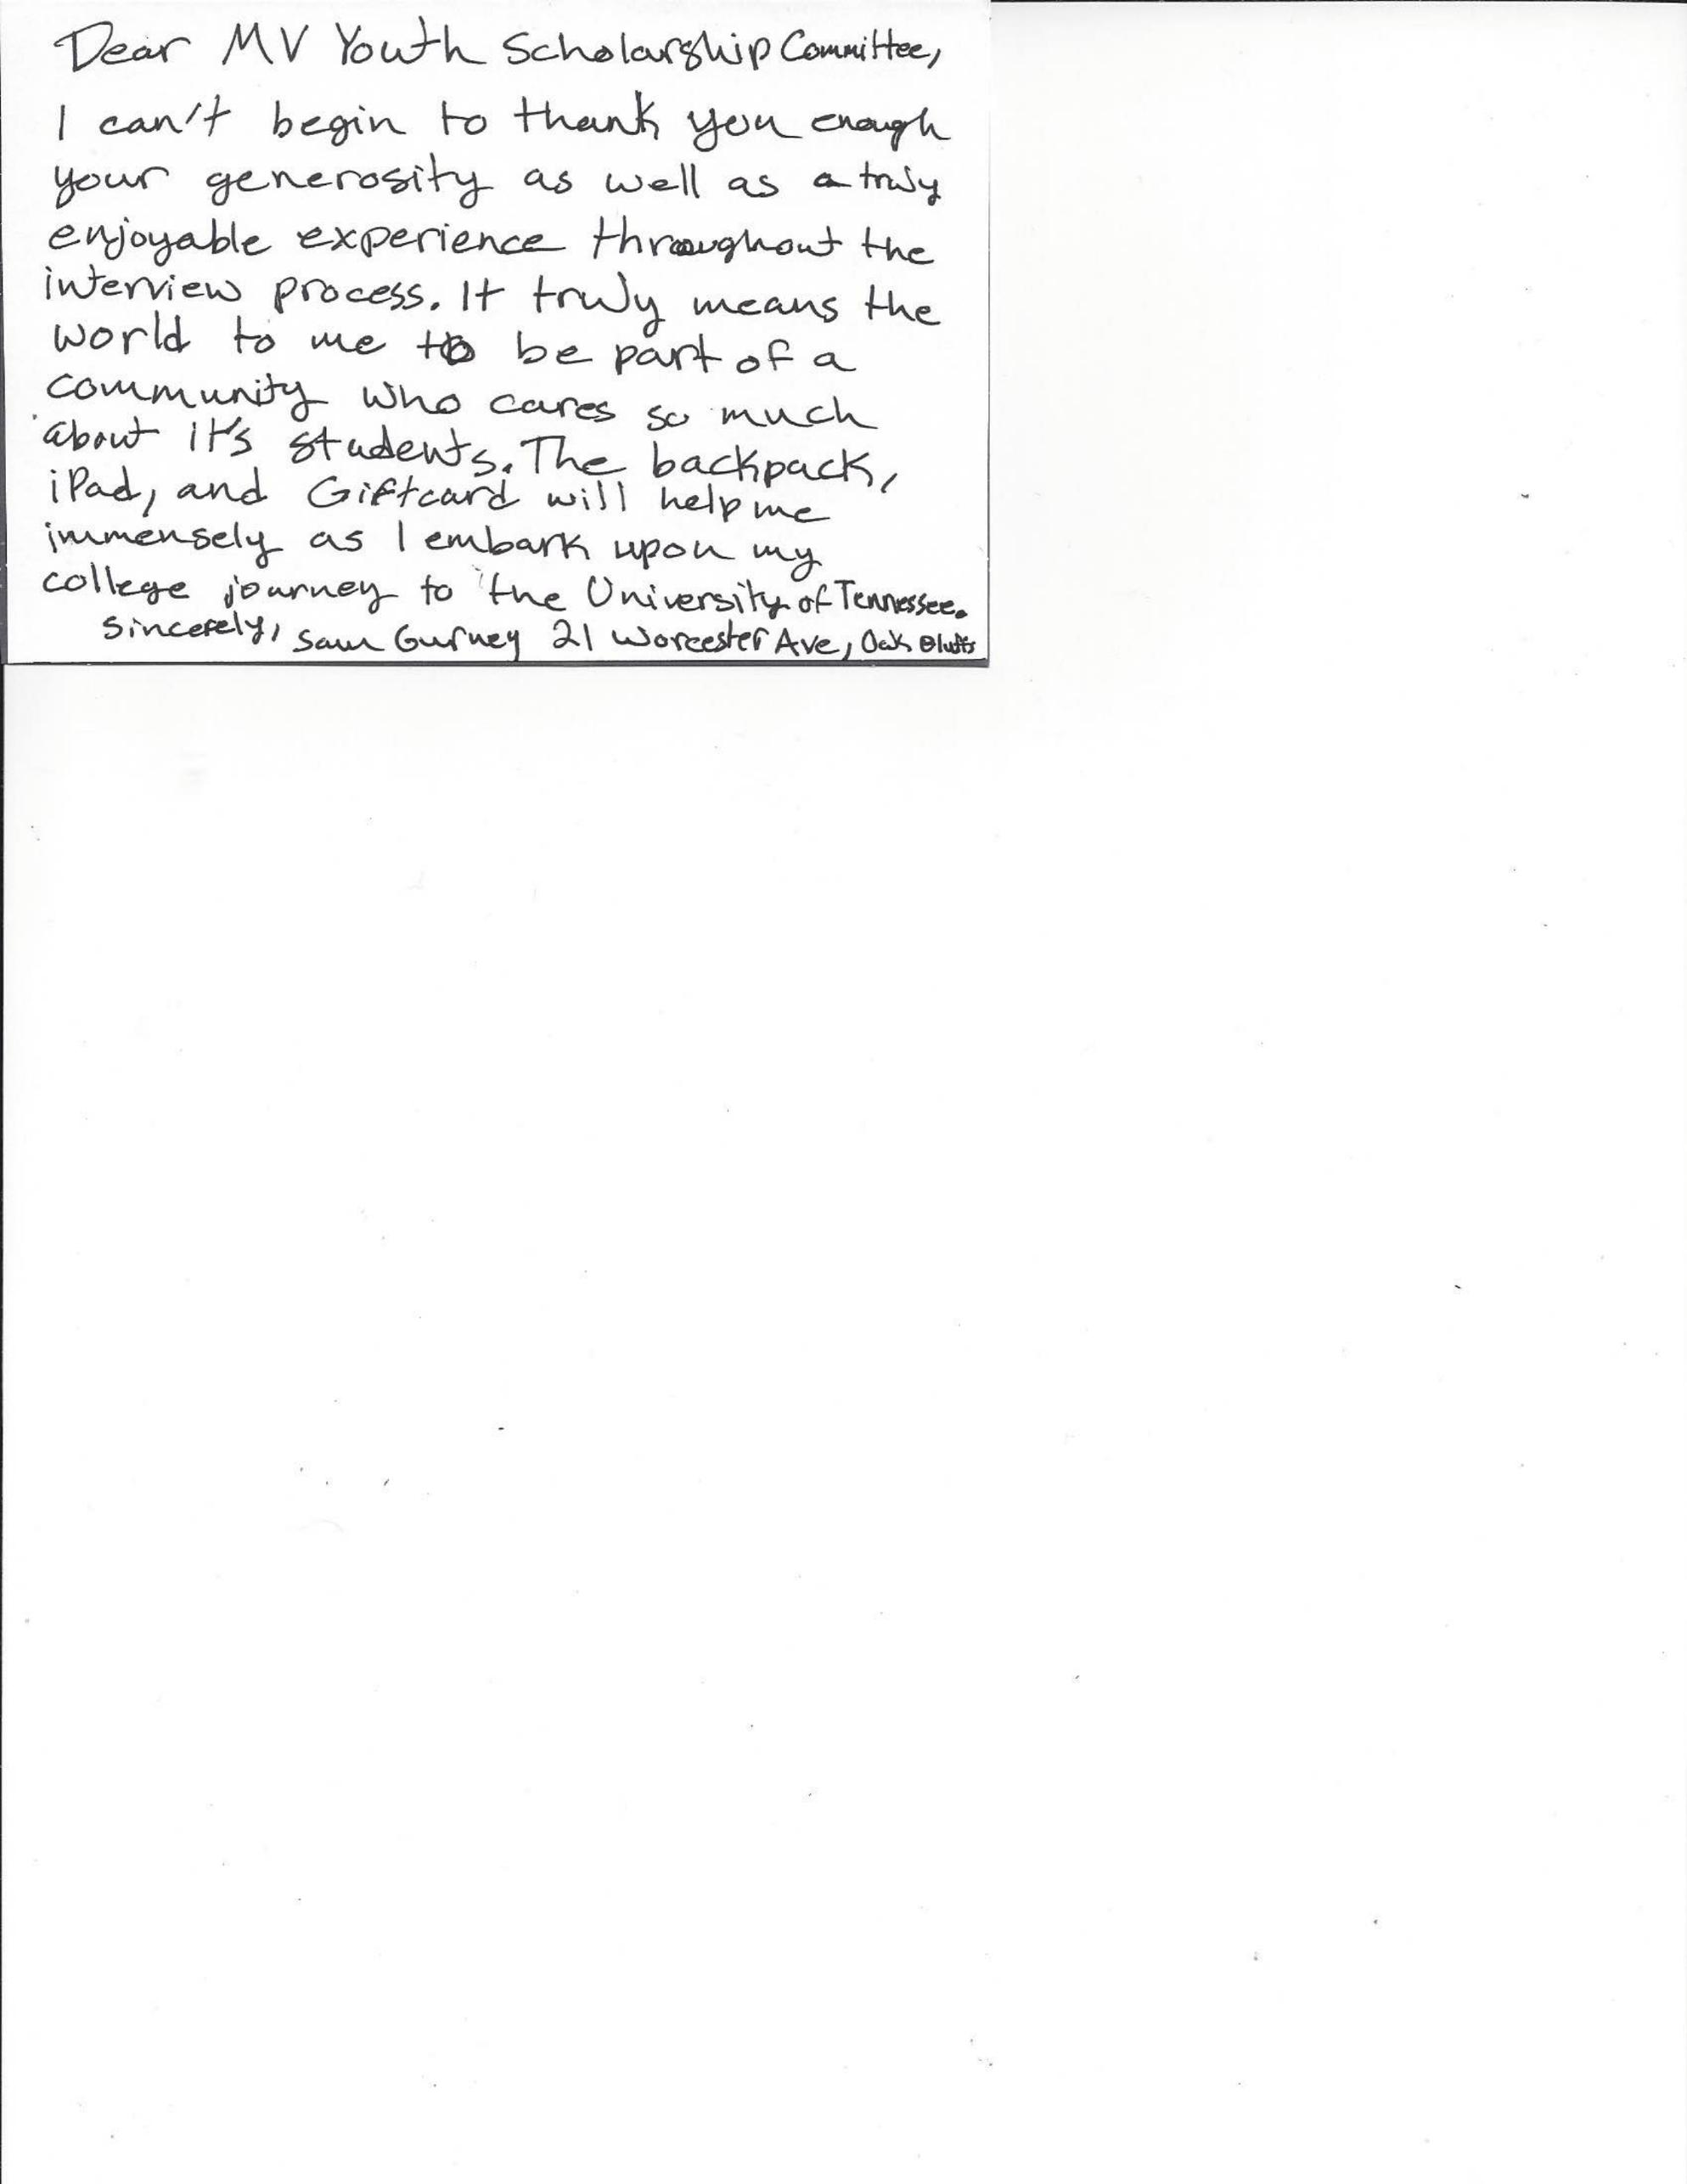 Dear MV Youth Scholarship Committee,
I can't begin to thank you enough
your generosity as well as a truly
enjoyable experience throughout the
interview process. It truly means the
world to me to be part of a
community who cares so much
about it's students. The backpack,
iPad, and Giftcard will help me
immensely as I embark upon my
college journey to the University of Tennessee.
Sincerely, Sam Gurney 21 Worcester Ave, Oak Bluffs